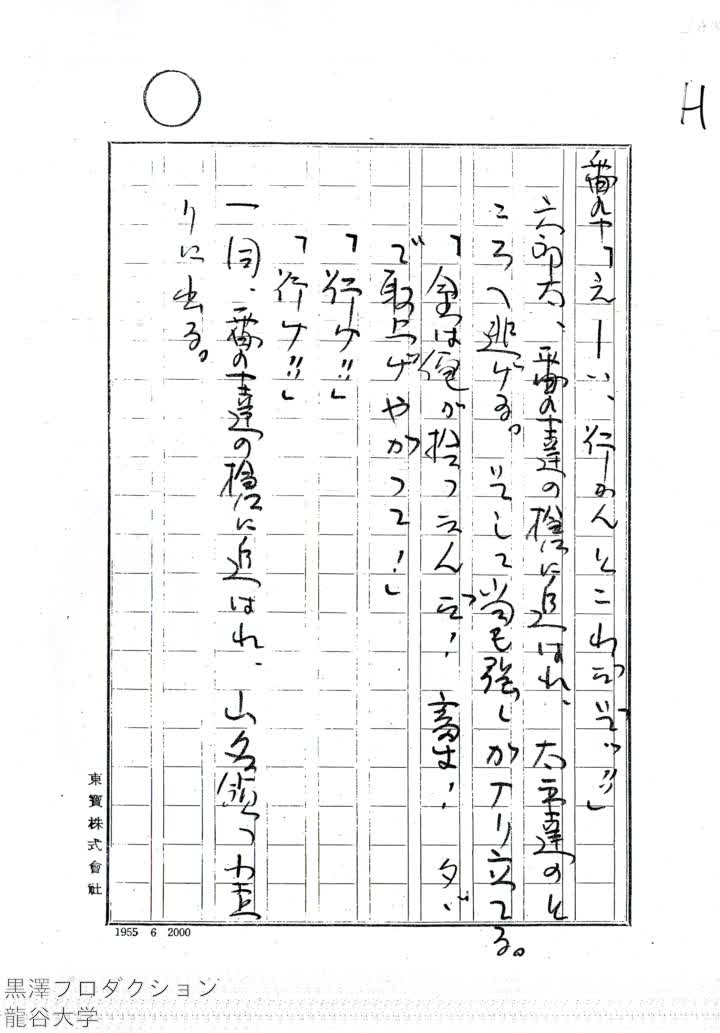 H
番卒「えーい、行かんとこれだぞッ!!」
六郎太、番の士達の槍に追はれ、太平達のと
ころへ逃げる。そして尚も強くがなり立てる。
「金は俺が拾つたんだ! 畜生! タダ
で取上げやがつて!」
「行け!!」
「行け!!」
一同、番の士達の槍に追はれ、山名領へ
りに出る。
東寶株式會社
1955 6 2000
黒澤プロダクション
龍谷大学